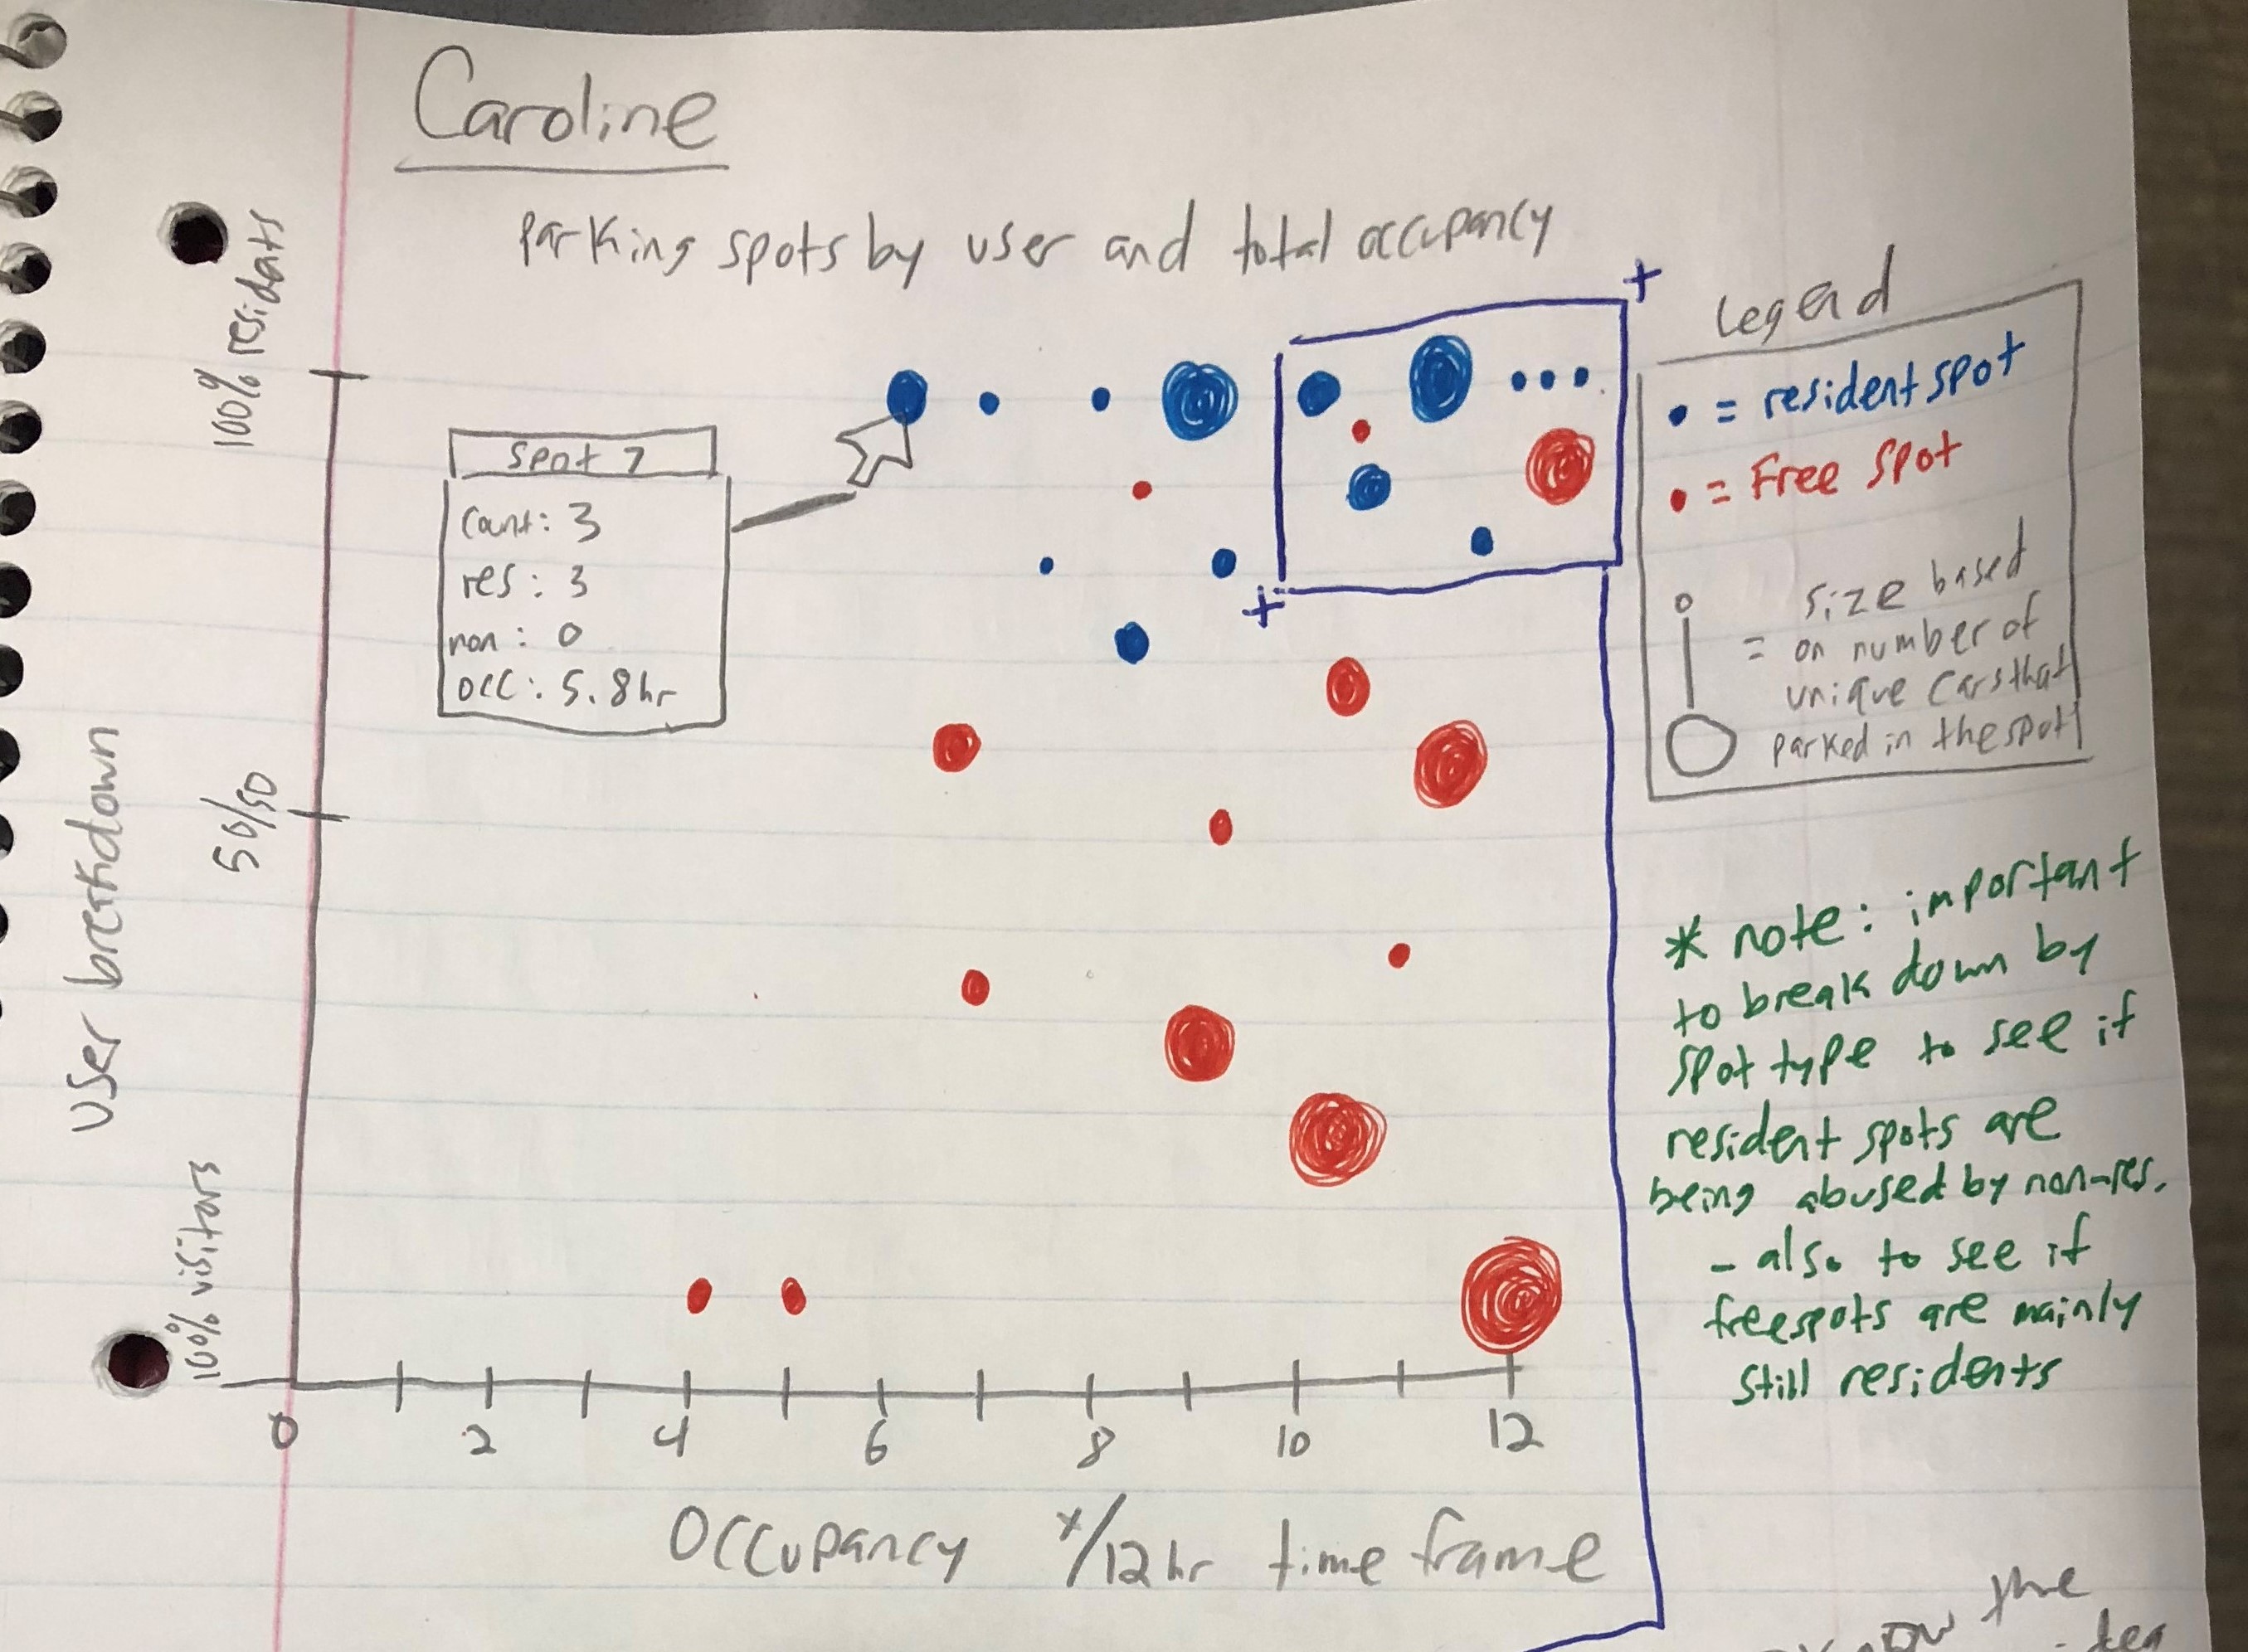 Caroline
Parking spots by user and total occupancy
100% residats
50/50
100% visitors
User breakdown
Spot 7
Count: 3
res: 3
non: 0
occ: 5.8hr
+
+
Legend
• = resident spot
• = Free spot
= size based
on number of
unique cars that
parked in the spot
* note: important
to break down by
spot type to see if
resident spots are
being abused by non-res.
- also to see if
freespots are mainly
still residents
0 2 4 6 8 10 12
Occupancy x/12hr time frame
the